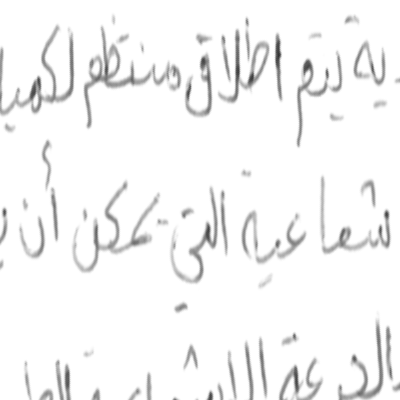 ية يتم اطلاق منتظم لكميا
شعاعية التي يمكن أن ي
الدرعة الاشعاعية